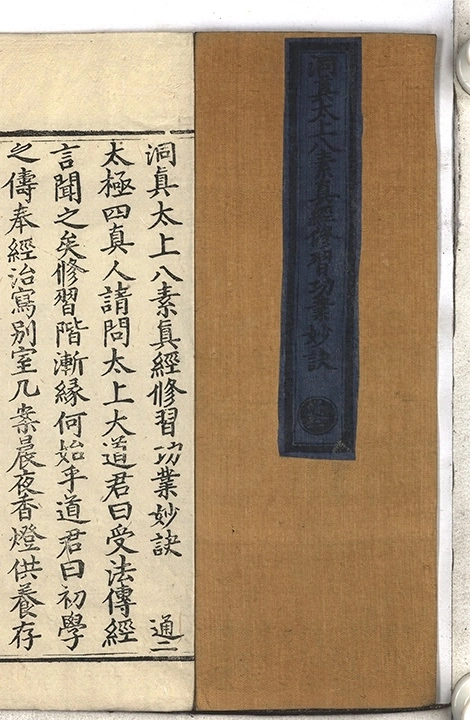 洞真太上八素真經修習功業妙訣
洞真太上八素真經修習功業妙訣 通二
太極四真人請問太上大道君曰受法傳經
言聞之矣修習階漸緣何始乎道君曰初學
之傳奉經治寫別室几案晨夜香燈供養存